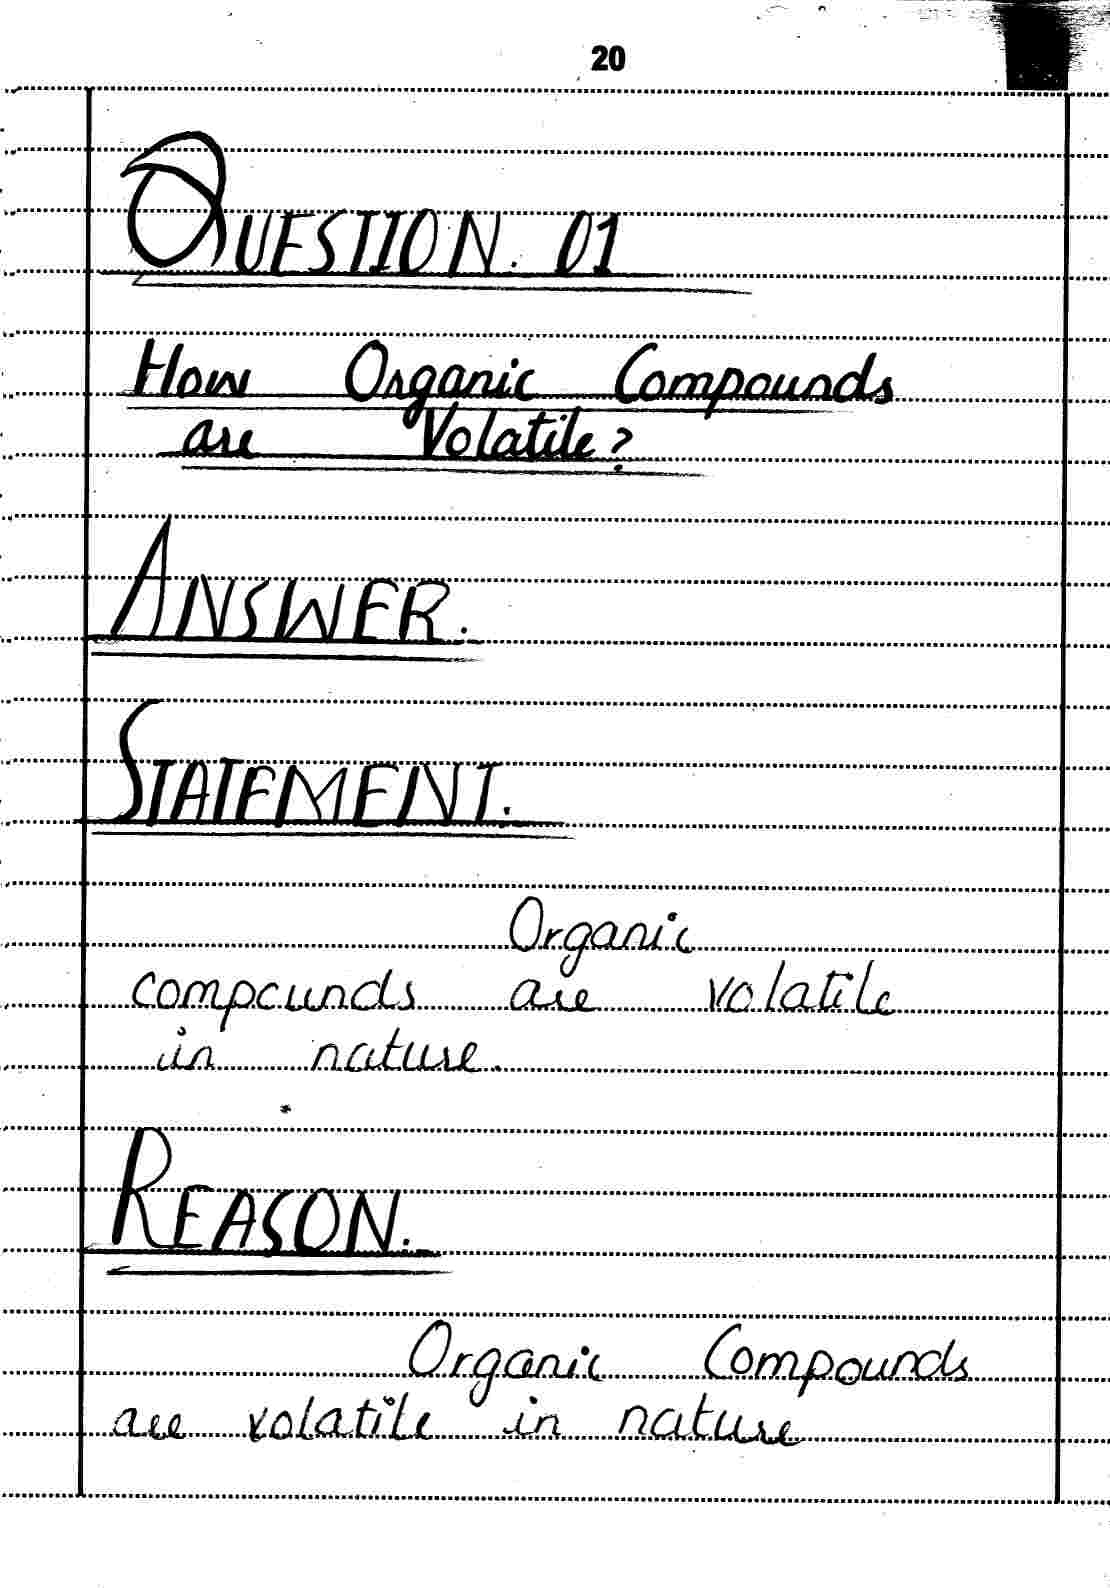 20
QUESTION. 01
How Organic Compounds
are Volatile?
ANSWER.
STATEMENT.
Organic
compounds are volatile
in nature.
REASON.
Organic Compounds
are volatile in nature